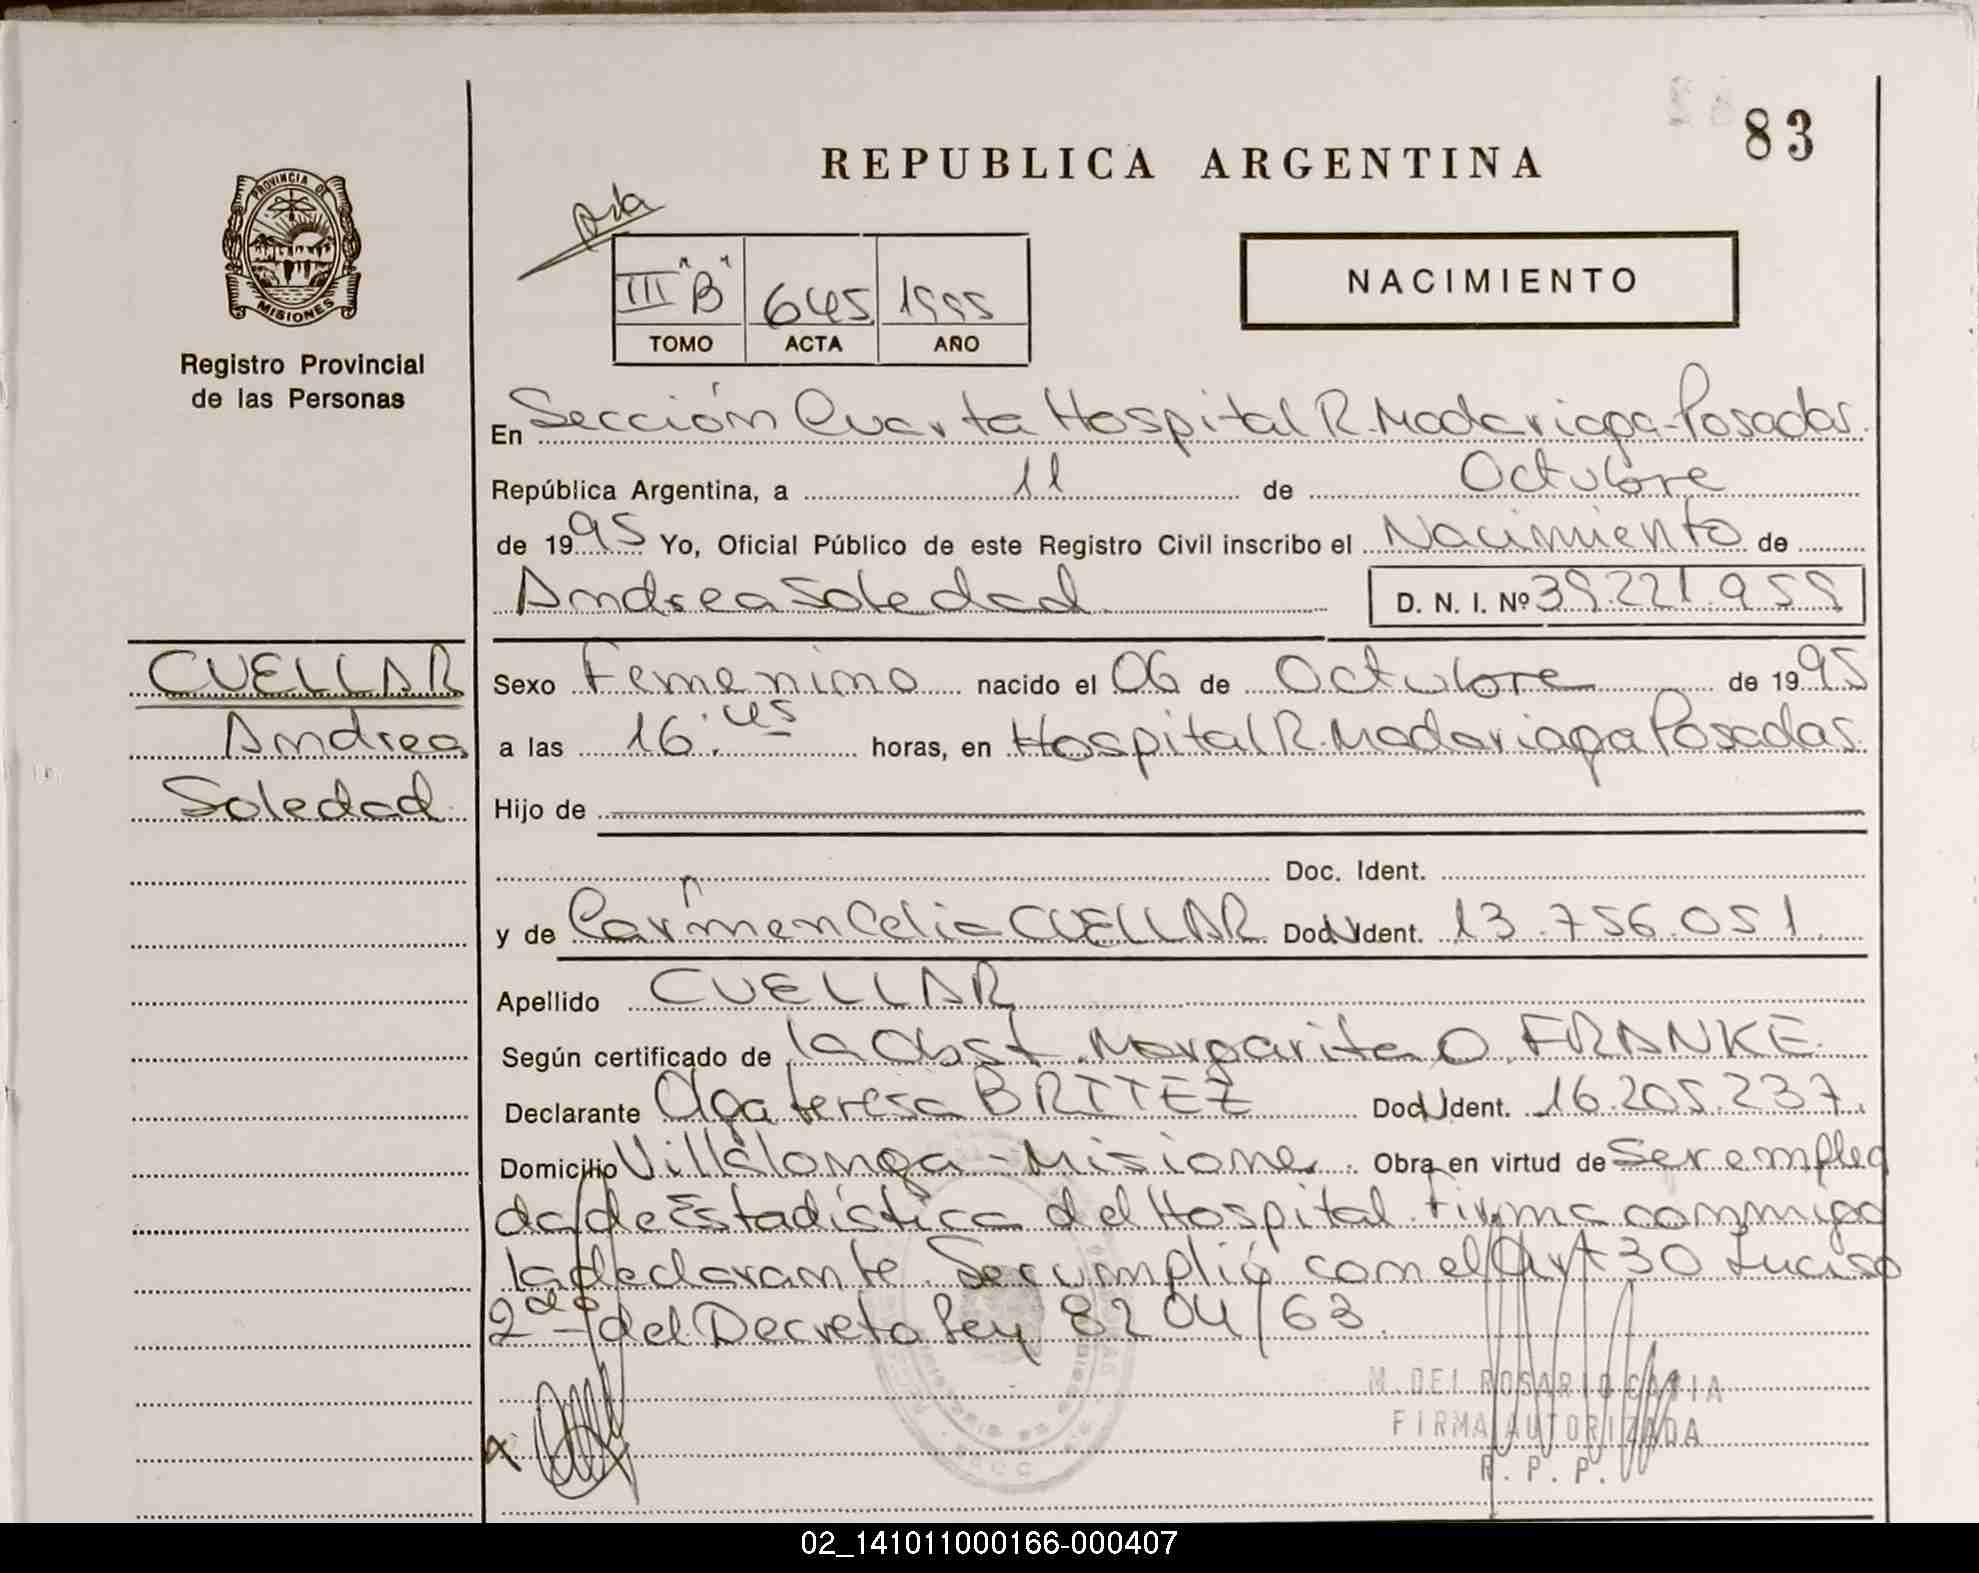 83
REPUBLICA ARGENTINA
PROVINCIA DE
MISIONES
Registro Provincial
de las Personas
III "B" 645 1995
TOMO ACTA AÑO
NACIMIENTO
En Sección Cuarta Hospital R. Madariaga-Posadas.
República Argentina, a 11 de Octubre
de 1995 Yo, Oficial Público de este Registro Civil inscribo el Nacimiento de
Andrea Soledad D. N. I. Nº 39.221.959
CUELLAR
Andrea
Soledad
Sexo Femenino nacido el 06 de Octubre de 1995
a las 16:45 horas, en Hospital R. Madariaga Posadas.
Hijo de
Doc. Ident.
y de Carmen Celia CUELLAR Doc. Ident. 13.756.051
Apellido CUELLAR
Según certificado de la Obst. Margarita O. FRANKE
Declarante Olga teresa BRITEZ Doc. Ident. 16.205.237
Domicilio Villalonga - Misiones. Obra en virtud de Ser emplea
da de Estadística del Hospital. Firma conmigo
la declarante. Se cumplió con el Art 30 Inciso
2do del Decreto Ley 8204/63
M. DEL ROSARIO
FIRMA AUTORIZADA
R. P. P.
02_141011000166-000407